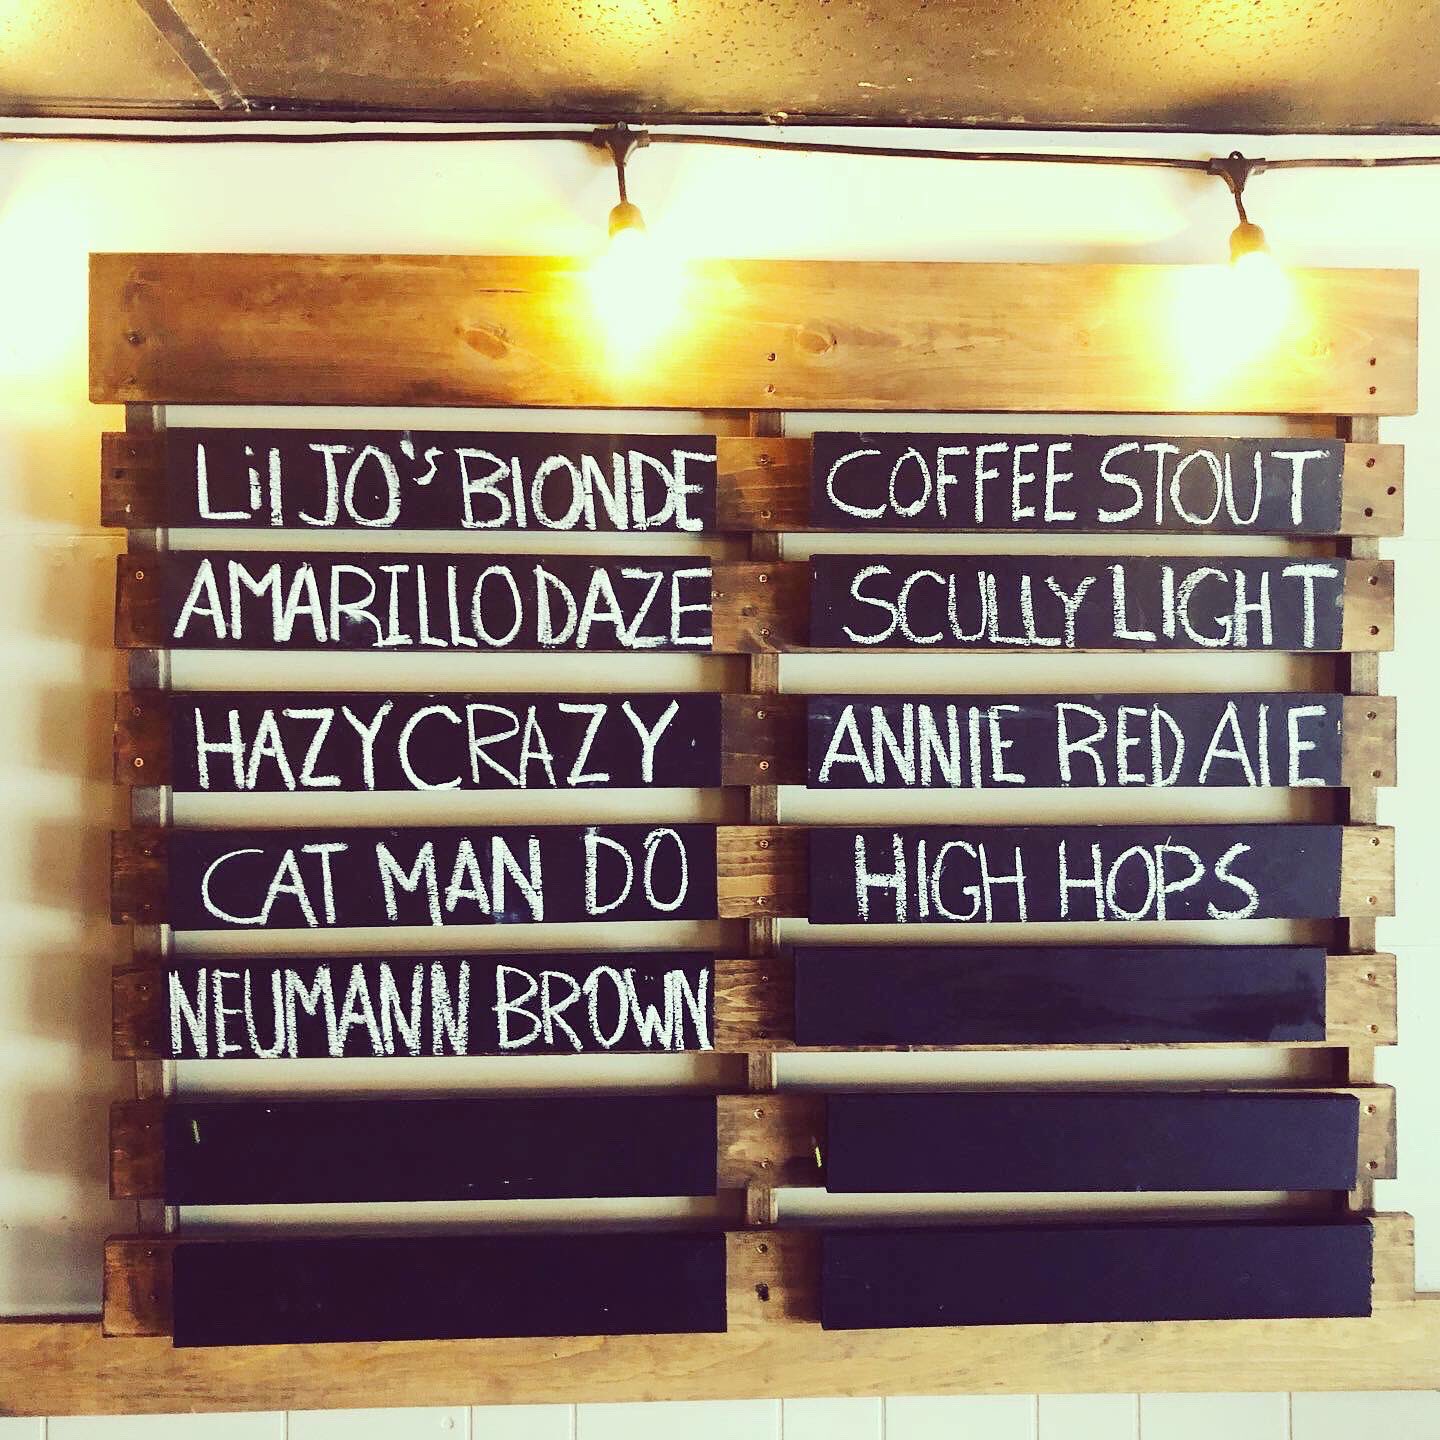 LiL JO's BLONDE
AMARILLO DAZE
HAZY CRAZY
CAT MAN DO
NEUMANN BROWN
COFFEE STOUT
SCULLY LIGHT
ANNIE RED ALE
HIGH HOPS